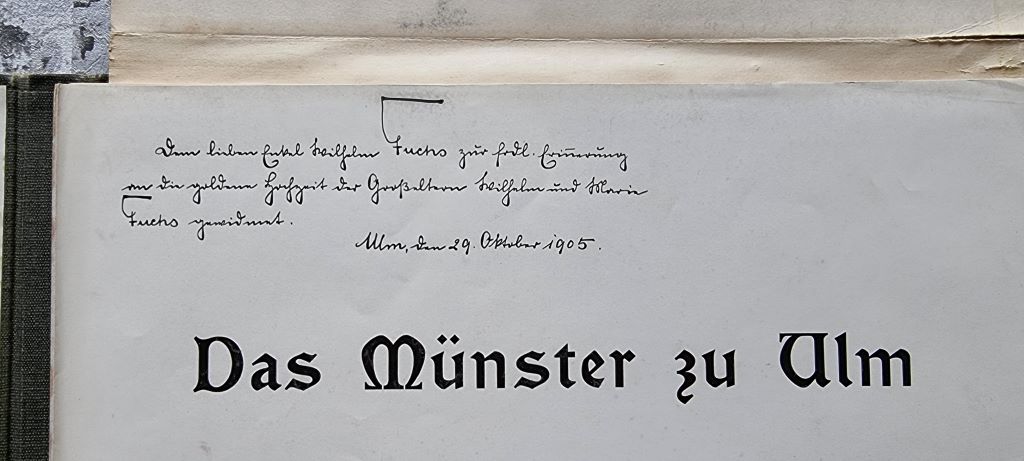 Dem lieben Enkel Wilhelm Fuchs zur frdl. Erinnerung
an die goldene Hochzeit der Großeltern Wilhelm und Marie
Fuchs gewidmet.
Ulm, den 29. Oktober 1905.
Das Münster zu Ulm